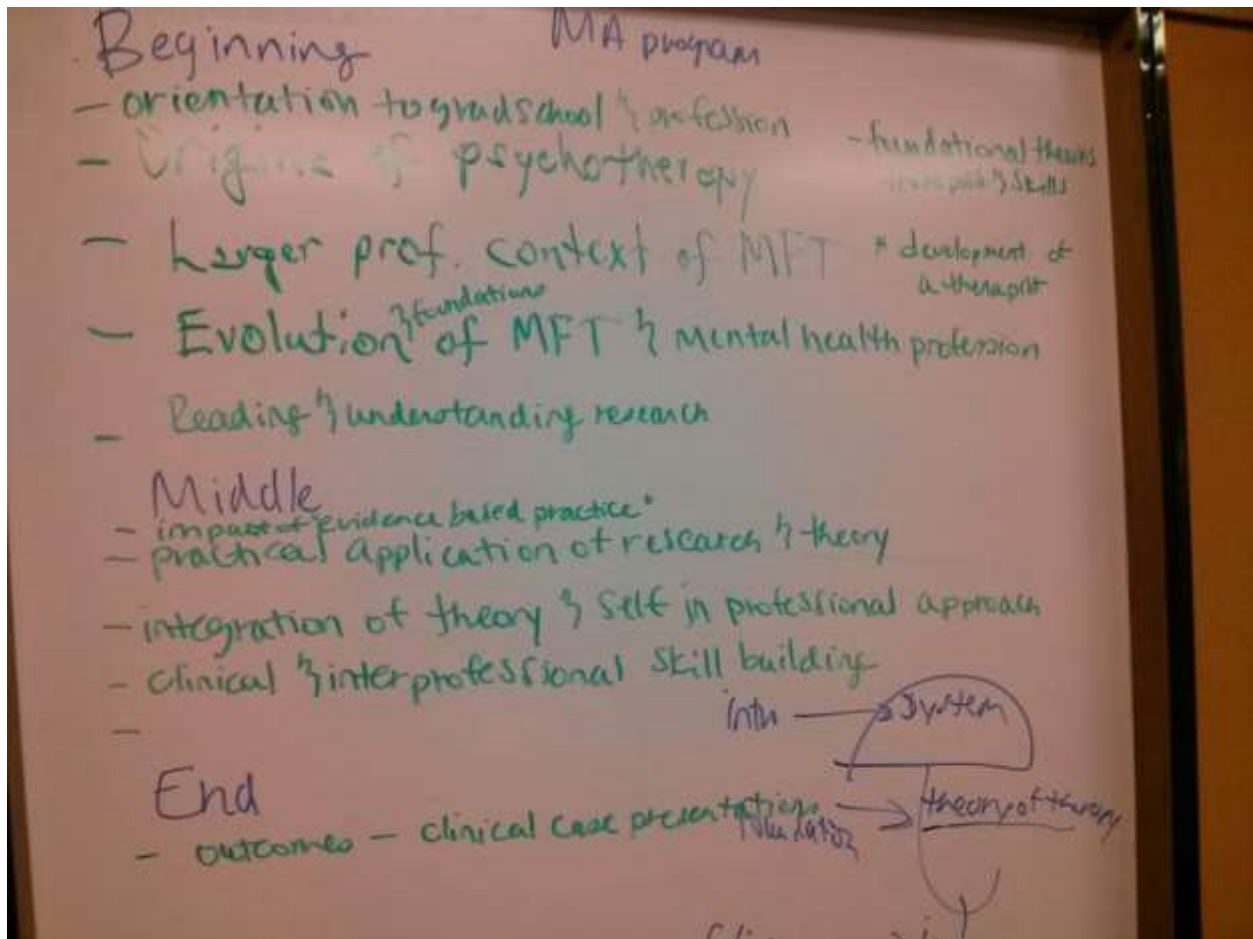 Beginning
MA program
- orientation to grad school & profession
- Origins of psychotherapy
- foundational theories
& skills
- Larger prof. context of MFT
* development of
a therapist
- Evolution & foundations of MFT & mental health profession
- Reading & understanding research
Middle
- impact of "evidence based practice"
- practical application of research & theory
- integration of theory & self in professional approach
- clinical & interprofessional skill building
-
System
End
- outcomes - clinical case presentations
theory of therapy
foundation